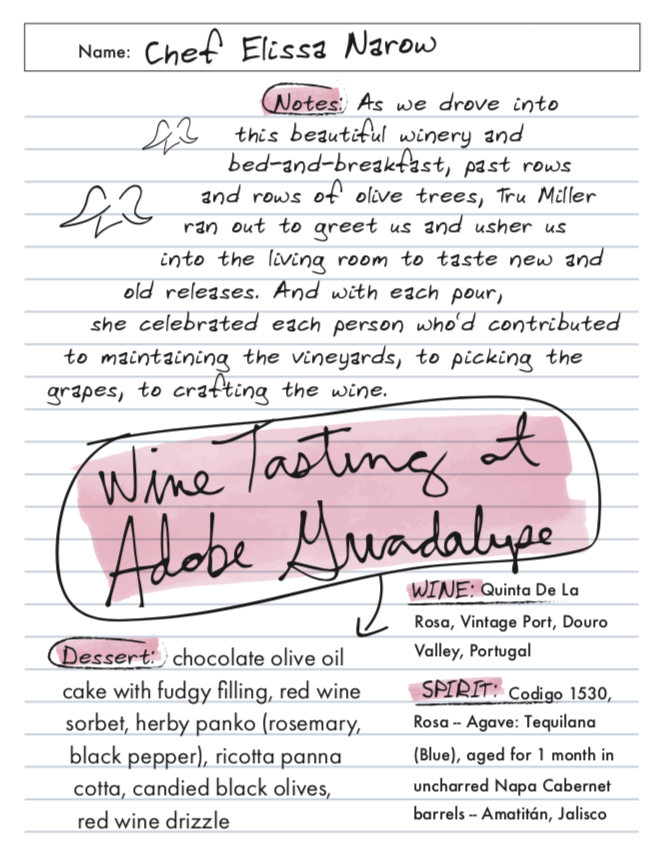 Name: Chef Elissa Narow
Notes: As we drove into
this beautiful winery and
bed-and-breakfast, past rows
and rows of olive trees, Tru Miller
ran out to greet us and usher us
into the living room to taste new and
old releases. And with each pour,
she celebrated each person who'd contributed
to maintaining the vineyards, to picking the
grapes, to crafting the wine.
Wine Tasting at
Adobe Guadalupe
Dessert: chocolate olive oil
cake with fudgy filling, red wine
sorbet, herby panko (rosemary,
black pepper), ricotta panna
cotta, candied black olives,
red wine drizzle
WINE: Quinta De La
Rosa, Vintage Port, Douro
Valley, Portugal
SPIRIT: Codigo 1530,
Rosa – Agave: Tequilana
(Blue), aged for 1 month in
uncharred Napa Cabernet
barrels – Amatitán, Jalisco